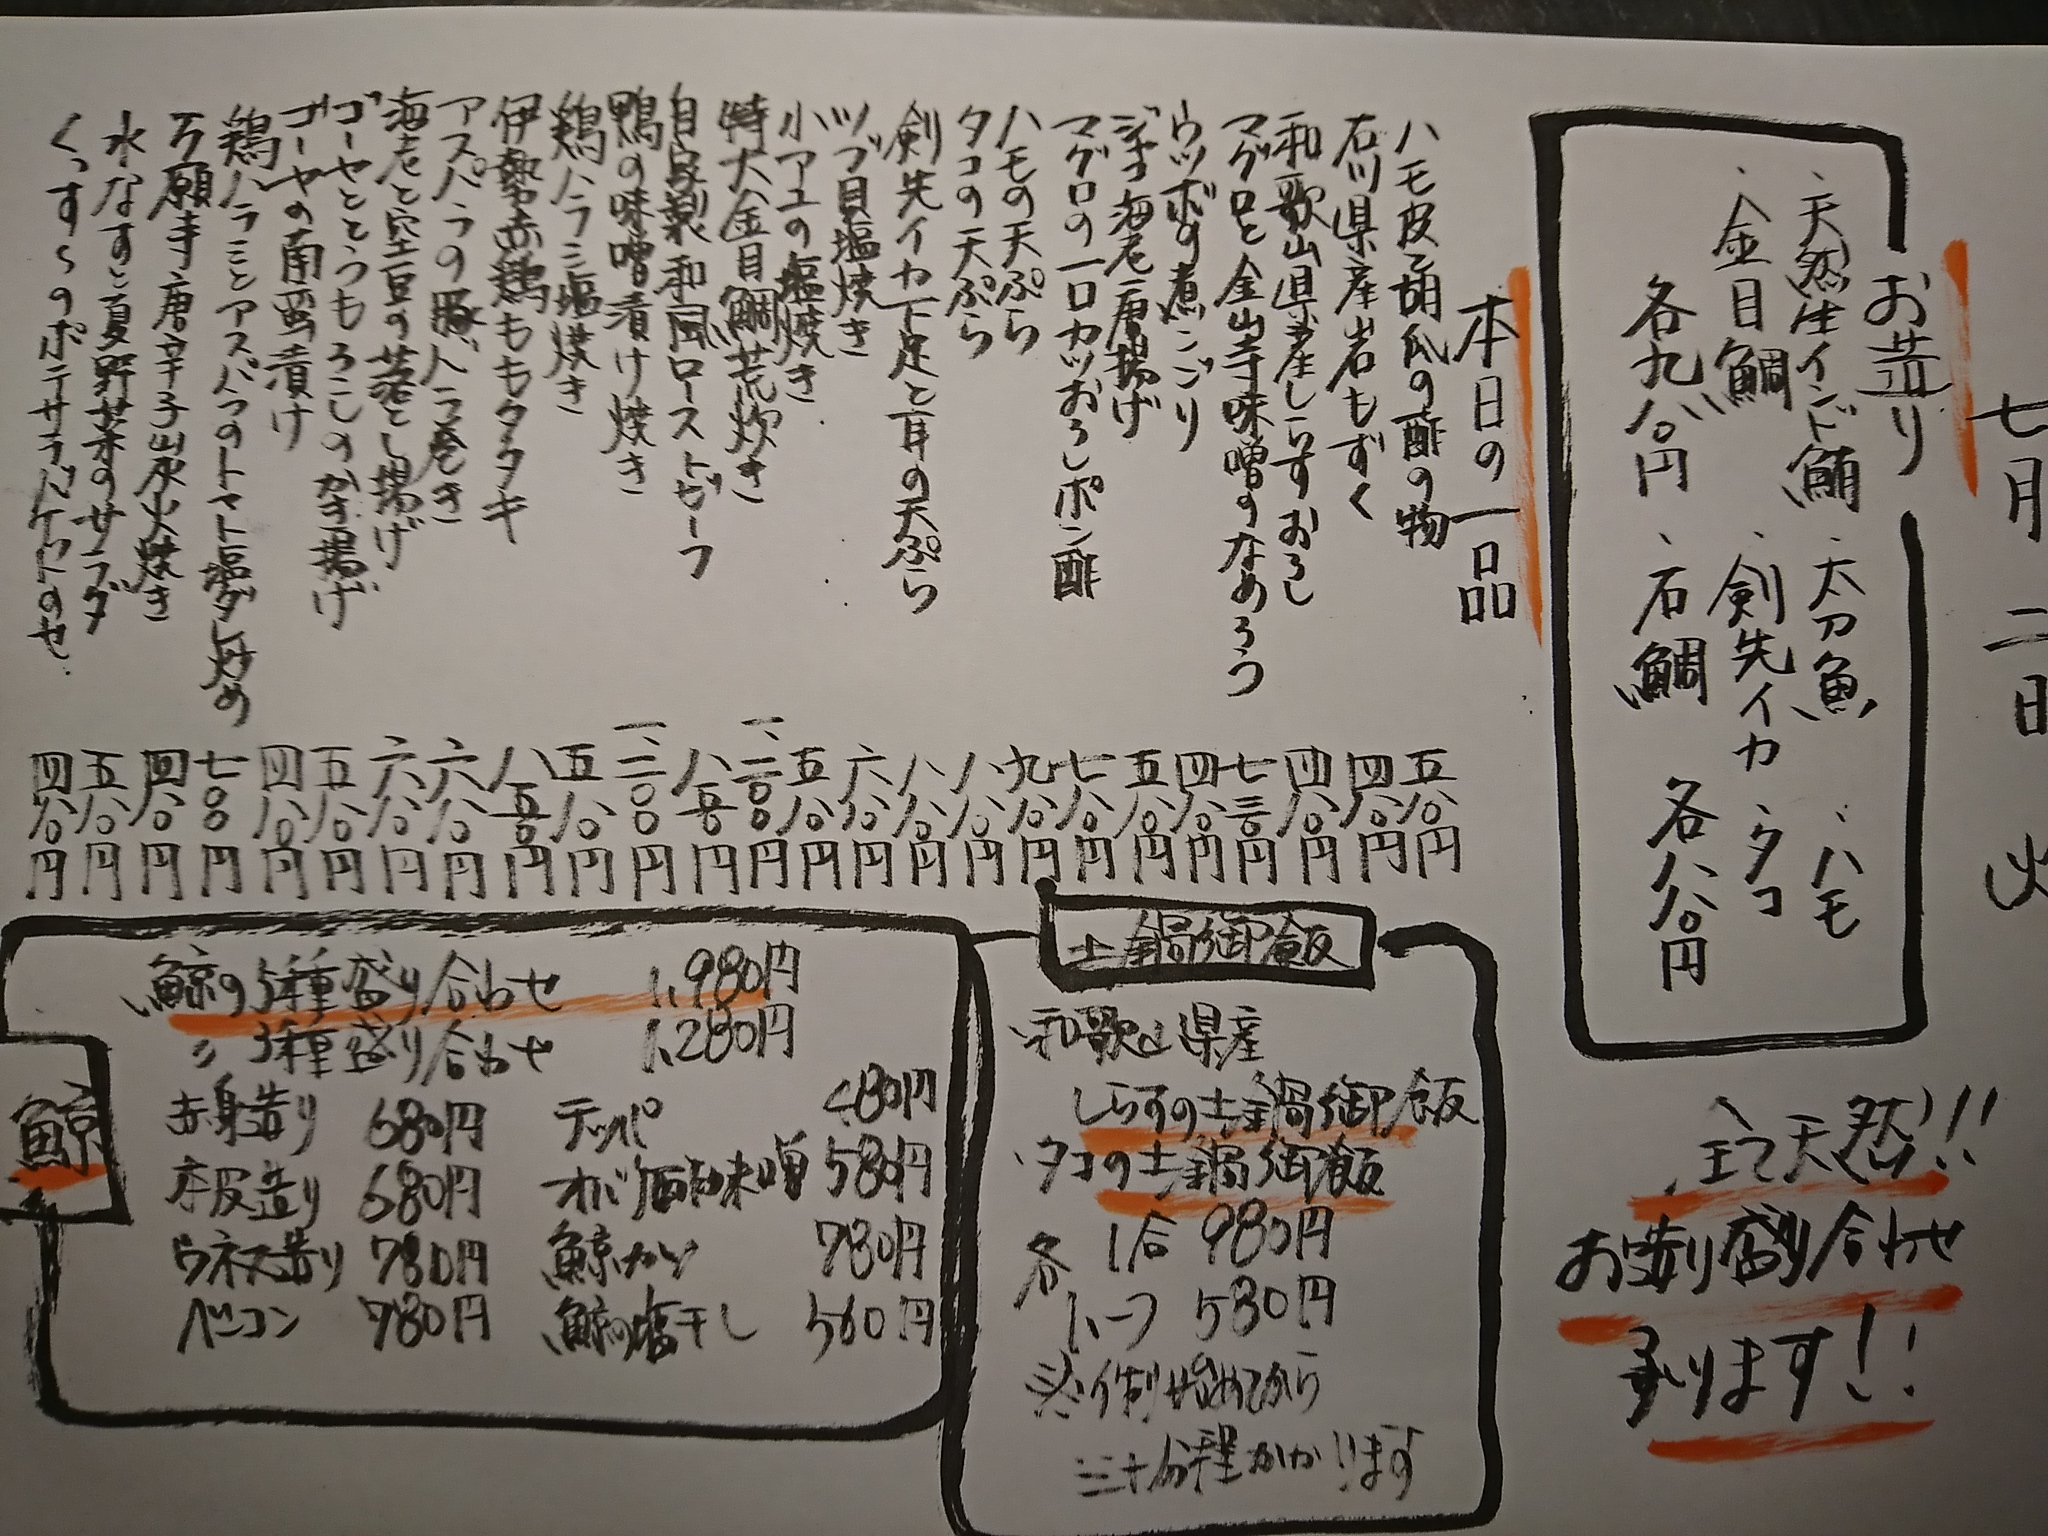 七月二日 火
お造り
、天然生インド鮪、太刀魚、ハモ
、金目鯛、剣先イカ、タコ
各九八〇円、石鯛 各八八〇円
全て天然!!
お造り盛り合わせ
承ります!!
本日の一品
ハモ皮と胡瓜の酢の物 五八〇円
石川県産岩もずく 四八〇円
和歌山県産しらすおろし 四八〇円
マグロと金山寺味噌のなめろう 七三〇円
ウツボの煮こごり 四八〇円
ジャコ海老唐揚げ 五八〇円
マグロの一口カツおろしポン酢 七八〇円
ハモの天ぷら 九八〇円
タコの天ぷら 八八〇円
剣先イカ下足と耳の天ぷら 八八〇円
ツブ貝塩焼き 六八〇円
小アユの塩焼き 五八〇円
特大金目鯛荒炊き 一、二〇〇円
自家製和風ローストビーフ 八五〇円
鴨の味噌漬け焼き 一、二〇〇円
鶏ハラミ塩焼き 五八〇円
伊勢赤鶏ももタタキ 八五〇円
アスパラの豚バラ巻き 六八〇円
海老と空豆の落とし揚げ 六八〇円
ゴーヤととうもろこしのかき揚げ 五八〇円
ゴーヤの南蛮漬け 四八〇円
鶏ハラミとアスパラのトマト塩ダレ炒め 七〇〇円
万願寺唐辛子炭火焼き 四八〇円
水なすと夏野菜のサラダ 五八〇円
くっすーのポテサラバケットのせ 四八〇円
土鍋御飯
、和歌山県産
しらすの土鍋御飯
、タコの土鍋御飯
各 1合 980円
ハーフ 580円
※作り始めてから
三十分程かかります
鯨
鯨の5種盛り合わせ 1,980円
〃 3種盛り合わせ 1,280円
赤身造り 680円 テッパ 480円
本皮造り 680円 オバケ酢味噌 580円
ウネス造り 780円 鯨カツ 780円
ベーコン 780円 鯨の塩干し 560円